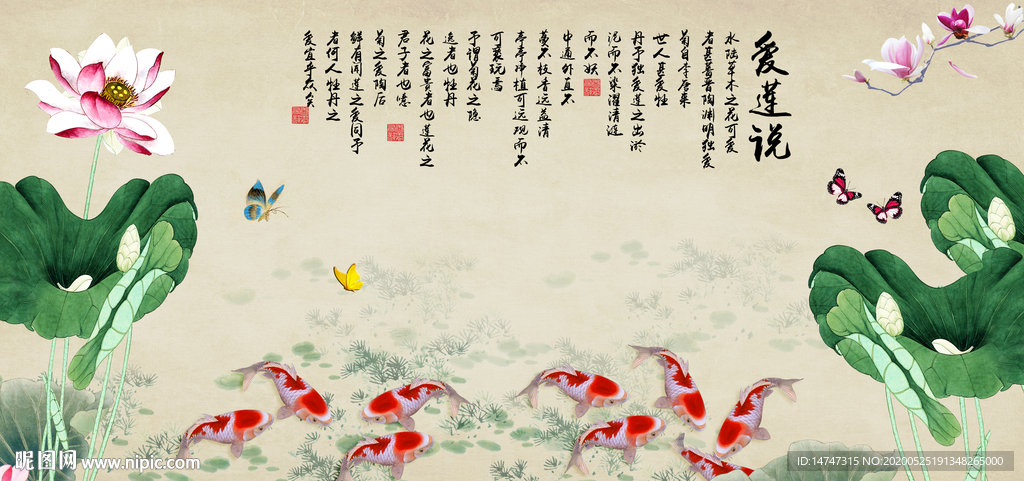 爱莲说
水陆草木之花可爱
者甚蕃晋陶渊明独爱
菊自李唐来
世人甚爱牡
丹予独爱莲之出淤
泥而不染濯清涟
而不妖
中通外直不
蔓不枝香远益清
亭亭净植可远观而不
可亵玩焉
予谓菊花之隐
逸者也牡丹
花之富贵者也莲花之
君子者也噫
菊之爱陶后
鲜有闻莲之爱同予
者何人牡丹之
爱宜乎众矣
昵图网 www.nipic.com
ID:14747315 NO:20200525191348265000